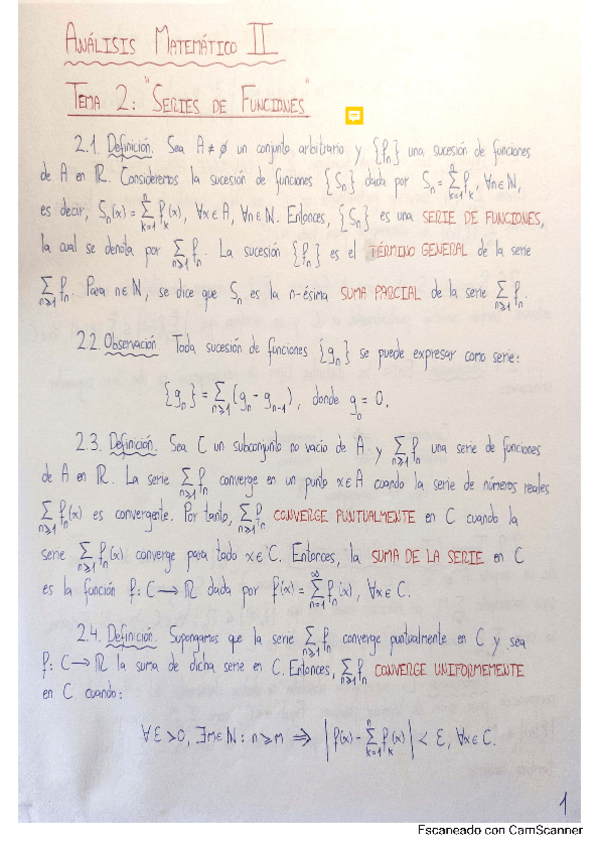 ANÁLISIS MATEMÁTICO II
TEMA 2: "SERIES DE FUNCIONES"
2.1. Definición. Sea A ≠ ∅ un conjunto arbitrario y {fₙ} una sucesión de funciones
de A en ℝ. Consideremos la sucesión de funciones {Sₙ} dada por Sₙ = ∑ₖ₌₁ⁿ fₖ, ∀n∈ℕ,
es decir, Sₙ(x) = ∑ₖ₌₁ⁿ fₖ(x), ∀x∈A, ∀n∈ℕ. Entonces, {Sₙ} es una SERIE DE FUNCIONES,
la cual se denota por ∑ₙ≥₁ fₙ. La sucesión {fₙ} es el TÉRMINO GENERAL de la serie
∑ₙ≥₁ fₙ. Para n∈ℕ, se dice que Sₙ es la n-ésima SUMA PARCIAL de la serie ∑ₙ≥₁ fₙ.
2.2. Observación Toda sucesión de funciones {gₙ} se puede expresar como serie:
{gₙ} = ∑ₙ≥₁ (gₙ - gₙ₋₁), donde g₀ = 0.
2.3. Definición. Sea C un subconjunto no vacío de A y ∑ₙ≥₁ fₙ una serie de funciones
de A en ℝ. La serie ∑ₙ≥₁ fₙ converge en un punto x∈A cuando la serie de números reales
∑ₙ≥₁ fₙ(x) es convergente. Por tanto, ∑ₙ≥₁ fₙ CONVERGE PUNTUALMENTE en C cuando la
serie ∑ₙ≥₁ fₙ(x) converge para todo x∈C. Entonces, la SUMA DE LA SERIE en C
es la función f: C → ℝ dada por f(x) = ∑ₙ₌₁^∞ fₙ(x), ∀x∈C.
2.4. Definición. Supongamos que la serie ∑ₙ≥₁ fₙ converge puntualmente en C y sea
f: C → ℝ la suma de dicha serie en C. Entonces, ∑ₙ≥₁ fₙ CONVERGE UNIFORMEMENTE
en C cuando:
∀ε > 0, ∃m∈ℕ: n ≥ m ⇒ |f(x) - ∑ₖ₌₁ⁿ fₖ(x)| < ε, ∀x∈C.
1
Escaneado con CamScanner